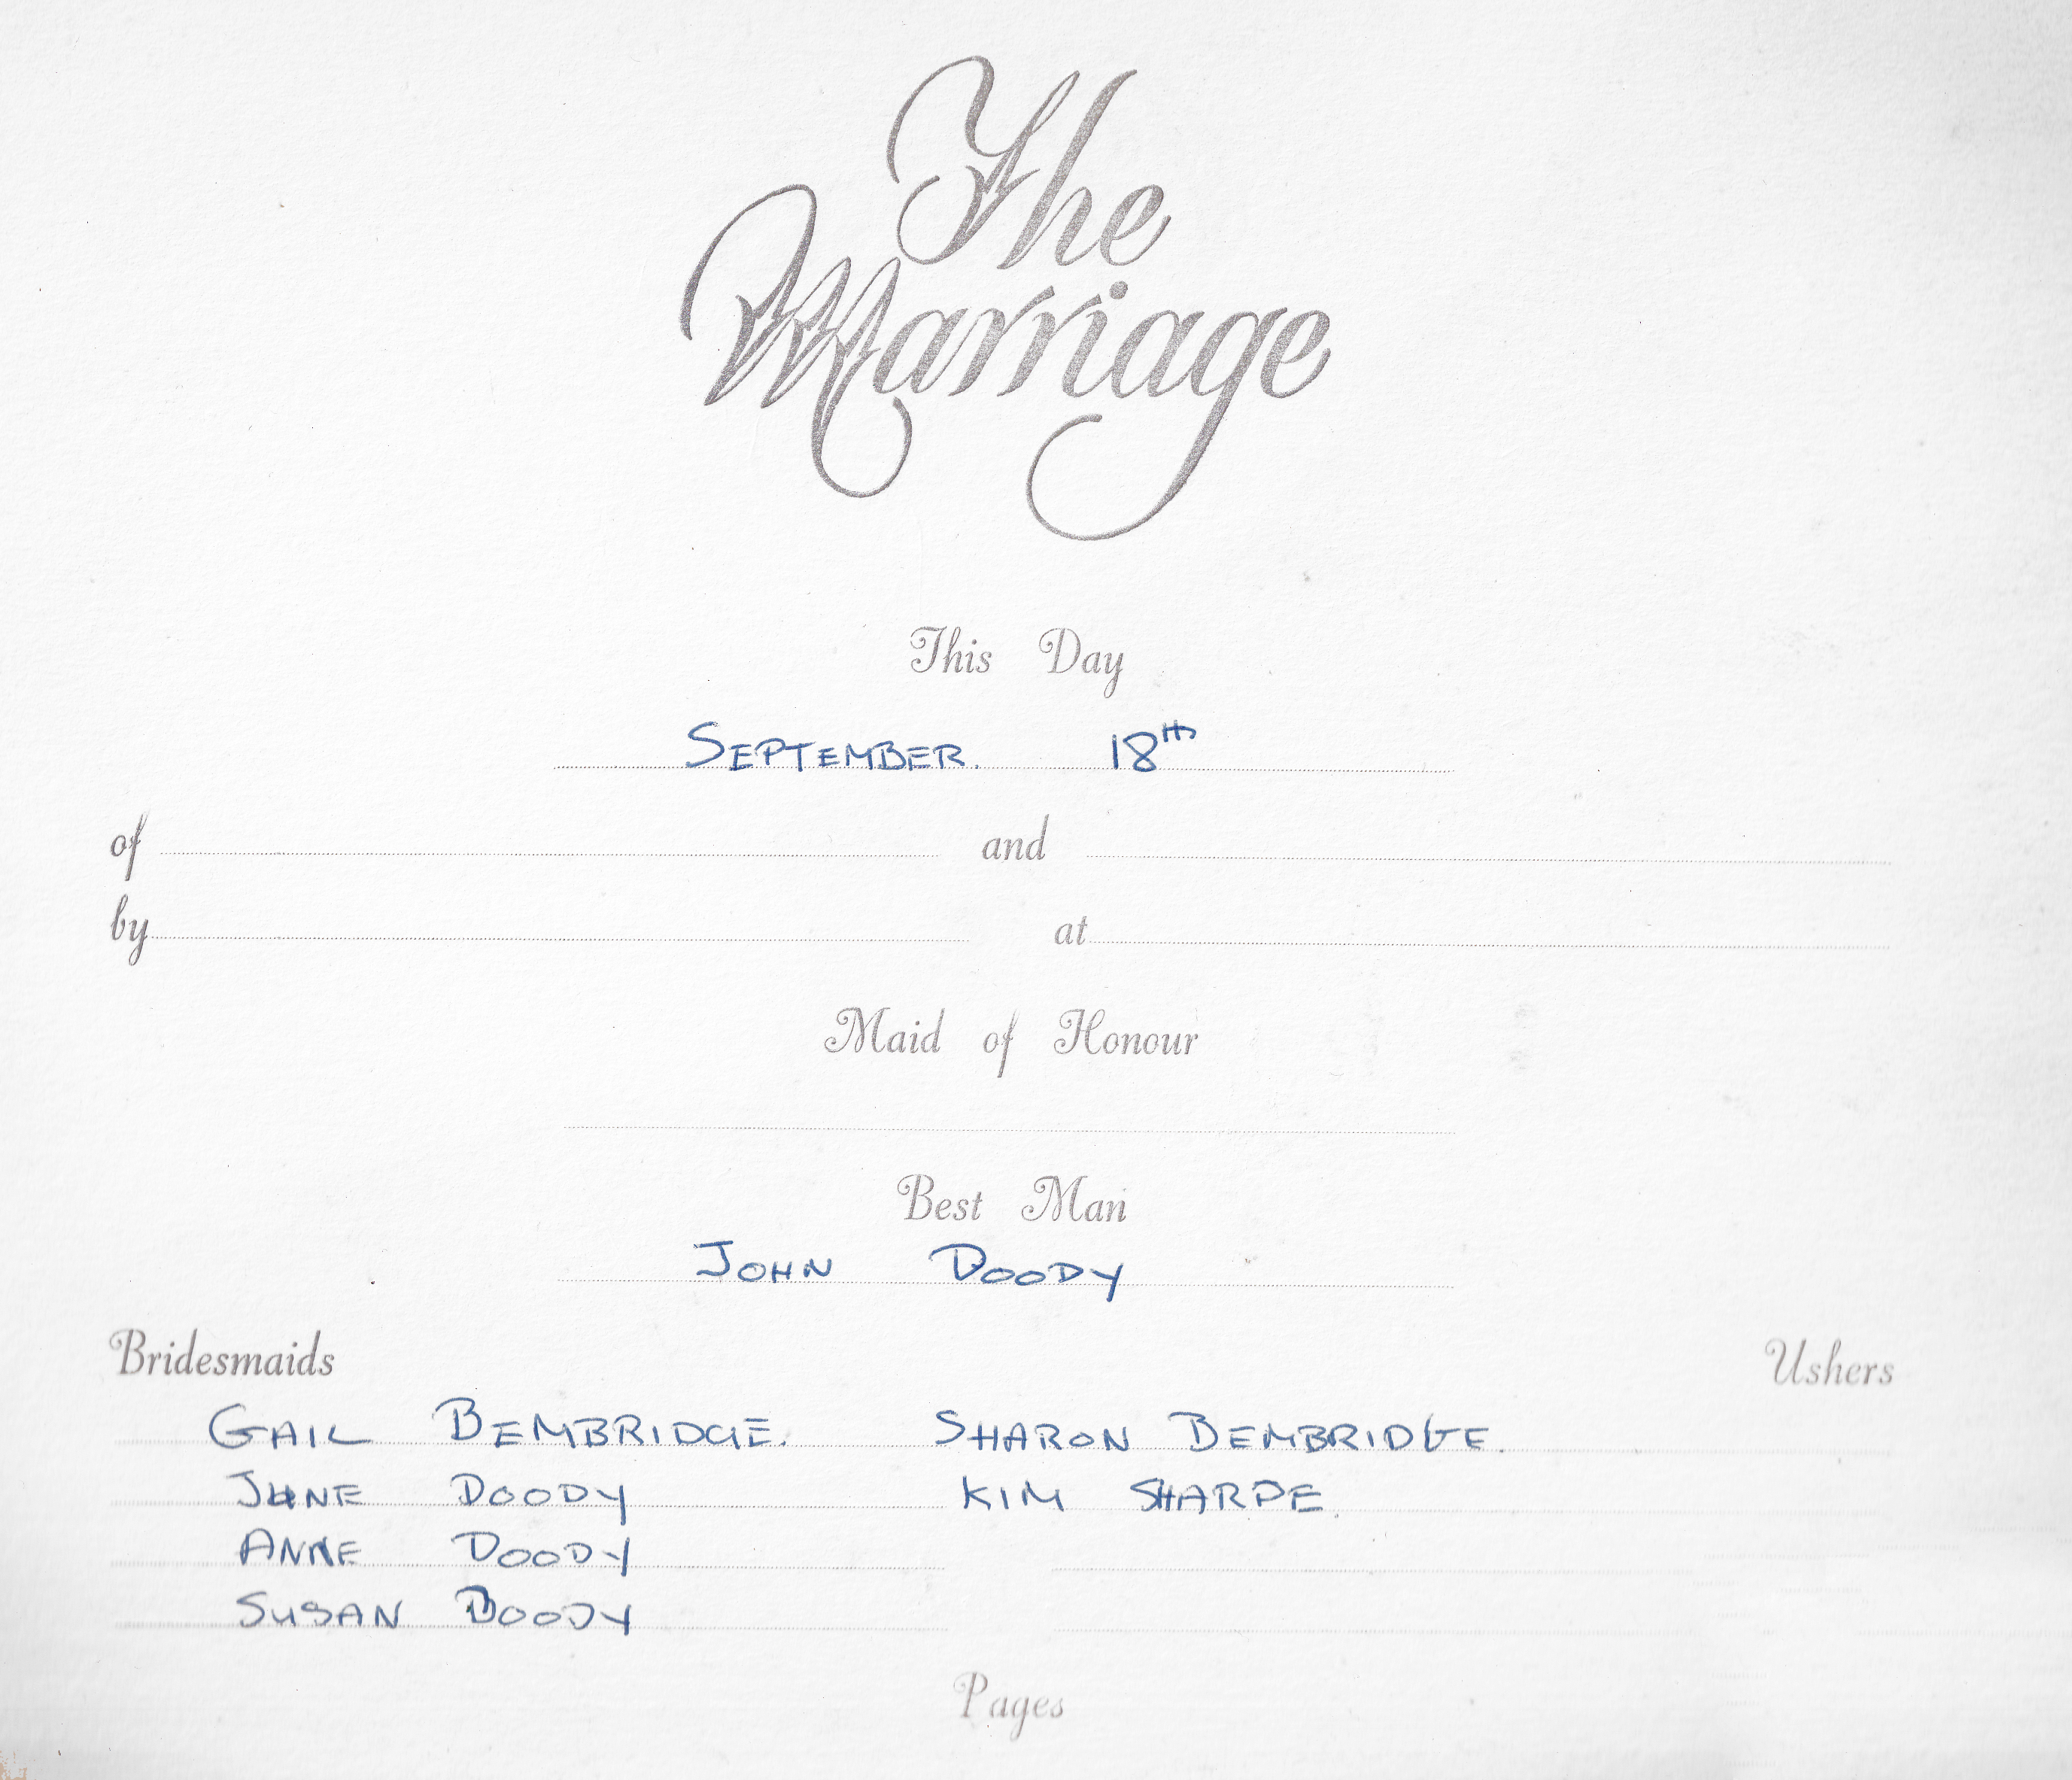 The
Marriage
This Day
SEPTEMBER. 18th
of and
by at
Maid of Honour
Best Man
JOHN DOODY
Bridesmaids Ushers
GAIL BEMBRIDGE. SHARON BEMBRIDGE.
JUNE DOODY KIM SHARPE.
ANNE DOODY
SUSAN DOODY
Pages